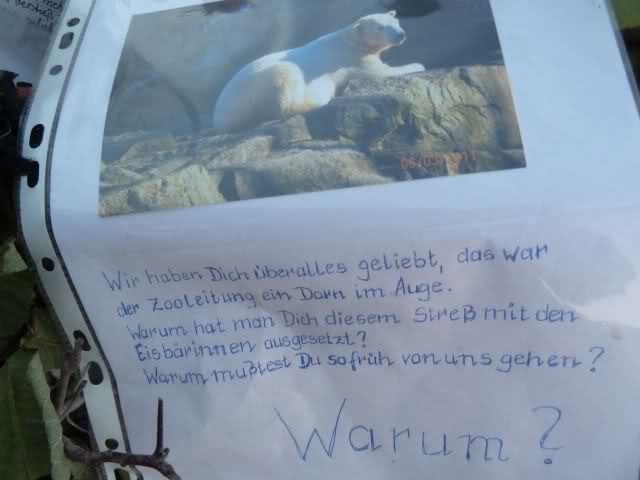 Wir haben Dich überalles geliebt, das war
der Zooleitung ein Dorn im Auge.
Warum hat man Dich diesem Streß mit den
Eisbärinnen ausgesetzt?
Warum mußtest Du so früh von uns gehen?
Warum?